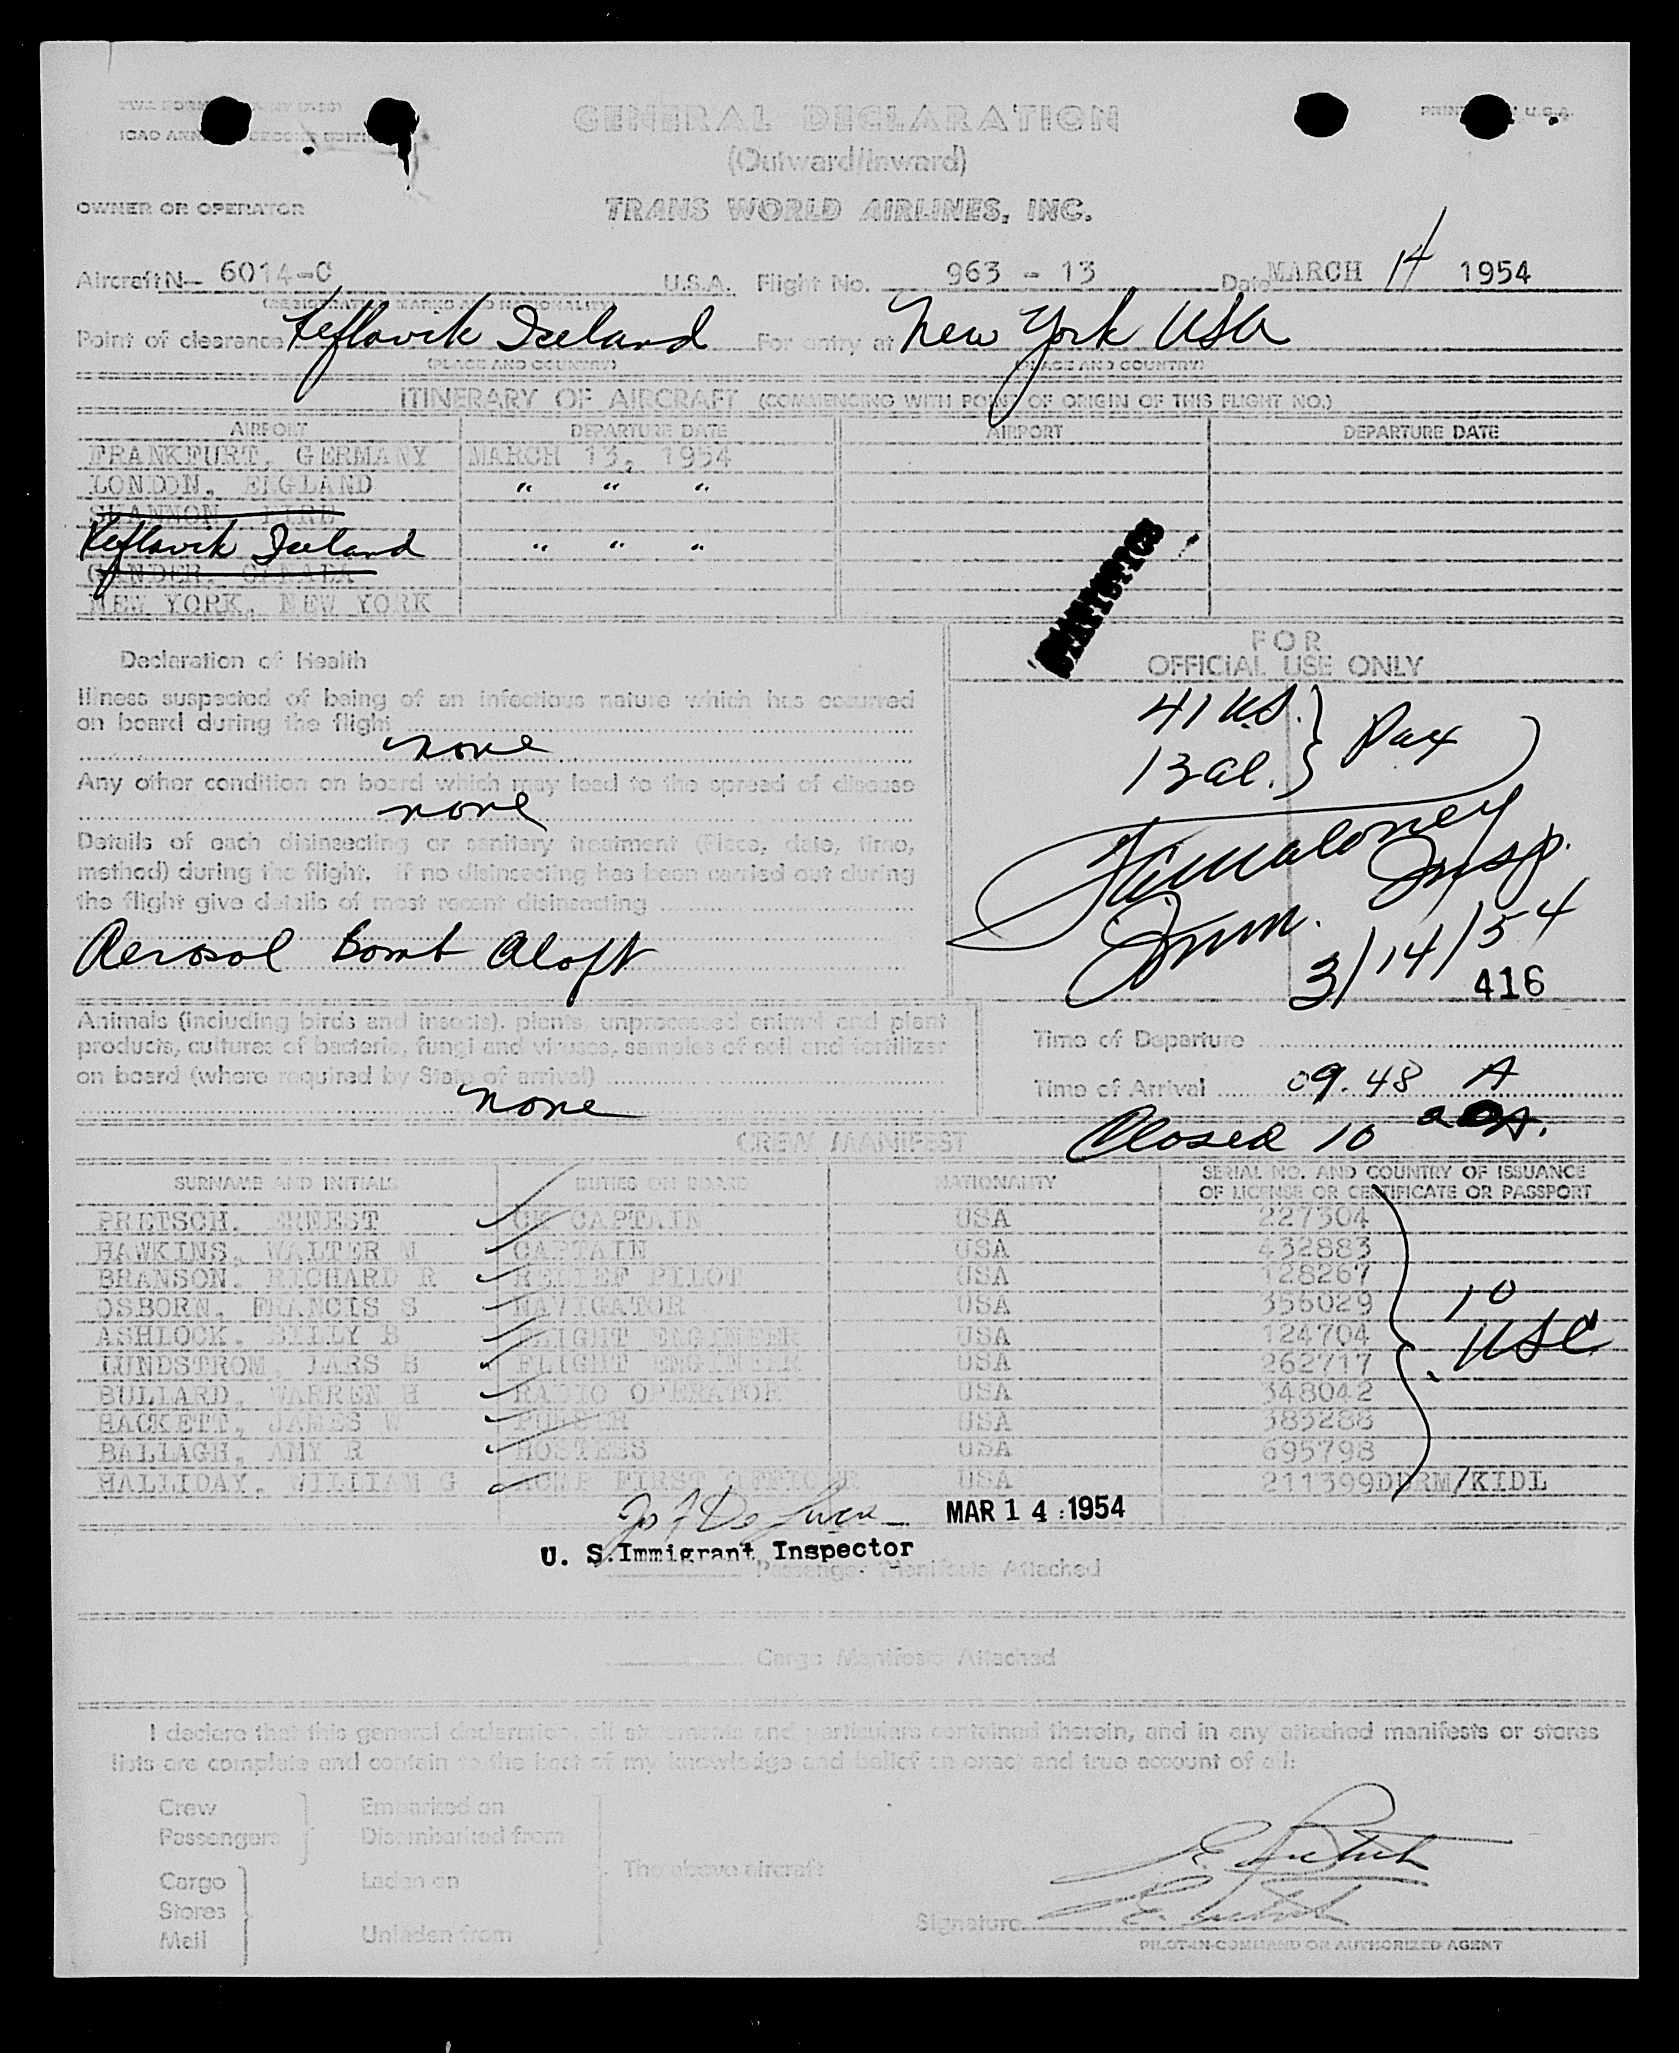 GENERAL DECLARATION
(Outward/Inward)
OWNER OR OPERATOR TRANS WORLD AIRLINES, INC.
Aircraft N— 6014-C U.S.A. Flight No. 963 - 13 Date MARCH 14 1954
(REGISTRATION MARKS AND NATIONALITY)
Point of clearance Keflavik Iceland For entry at New York USA
(PLACE AND COUNTRY) (PLACE AND COUNTRY)
ITINERARY OF AIRCRAFT (COMMENCING WITH POINT OF ORIGIN OF THIS FLIGHT NO.)
AIRPORT DEPARTURE DATE AIRPORT DEPARTURE DATE
FRANKFURT, GERMANY MARCH 13, 1954
LONDON, ENGLAND " " "
SHANNON, EIRE
Keflavik Iceland " " "
GANDER, CANADA
NEW YORK, NEW YORK
STATISTICS
Declaration of Health
Illness suspected of being of an infectious nature which has occurred
on board during the flight
none
Any other condition on board which may lead to the spread of disease
none
Details of each disinsecting or sanitary treatment (Place, date, time,
method) during the flight. If no disinsecting has been carried out during
the flight give details of most recent disinsecting
Aerosol Bomb Aloft
FOR
OFFICIAL USE ONLY
41 US.
13 al. } Pax
Insp.
Imm.
3/14/54
416
Animals (including birds and insects), plants, unprocessed animal and plant
products, cultures of bacteria, fungi and viruses, samples of soil and fertilizer
on board (where required by State of arrival)
none
Time of Departure
Time of Arrival 09.48 A
Closed 10
CREW MANIFEST
SURNAME AND INITIALS DUTIES ON BOARD NATIONALITY SERIAL NO. AND COUNTRY OF ISSUANCE
OF LICENSE OR CERTIFICATE OR PASSPORT
PRETSCH, ERNEST CK CAPTAIN USA 227304
HAWKINS, WALTER M CAPTAIN USA 432883
BRANSON, RICHARD R RELIEF PILOT USA 128267
OSBORN, FRANCIS S NAVIGATOR USA 356029
ASHLOCK, BILLY B FLIGHT ENGINEER USA 124704
LUNDSTROM, LARS B FLIGHT ENGINEER USA 262717
BULLARD, WARREN H RADIO OPERATOR USA 348042
HACKETT, JAMES W PURSER USA 383288
BALLAGH, AMY R HOSTESS USA 695798
HALLIDAY, WILLIAM G ACMP FIRST OFFICER USA 211399
10
USC
MAR 14 1954
U. S. Immigrant Inspector
Passenger Manifests Attached
Cargo Manifests Attached
I declare that this general declaration, all statements and particulars contained therein, and in any attached manifests or stores
lists are complete and contain to the best of my knowledge and belief an exact and true account of all:
Crew Embarked on
Passengers Disembarked from
The above aircraft
Cargo Laden on
Stores
Mail Unladen from
Signature
PILOT-IN-COMMAND OR AUTHORIZED AGENT